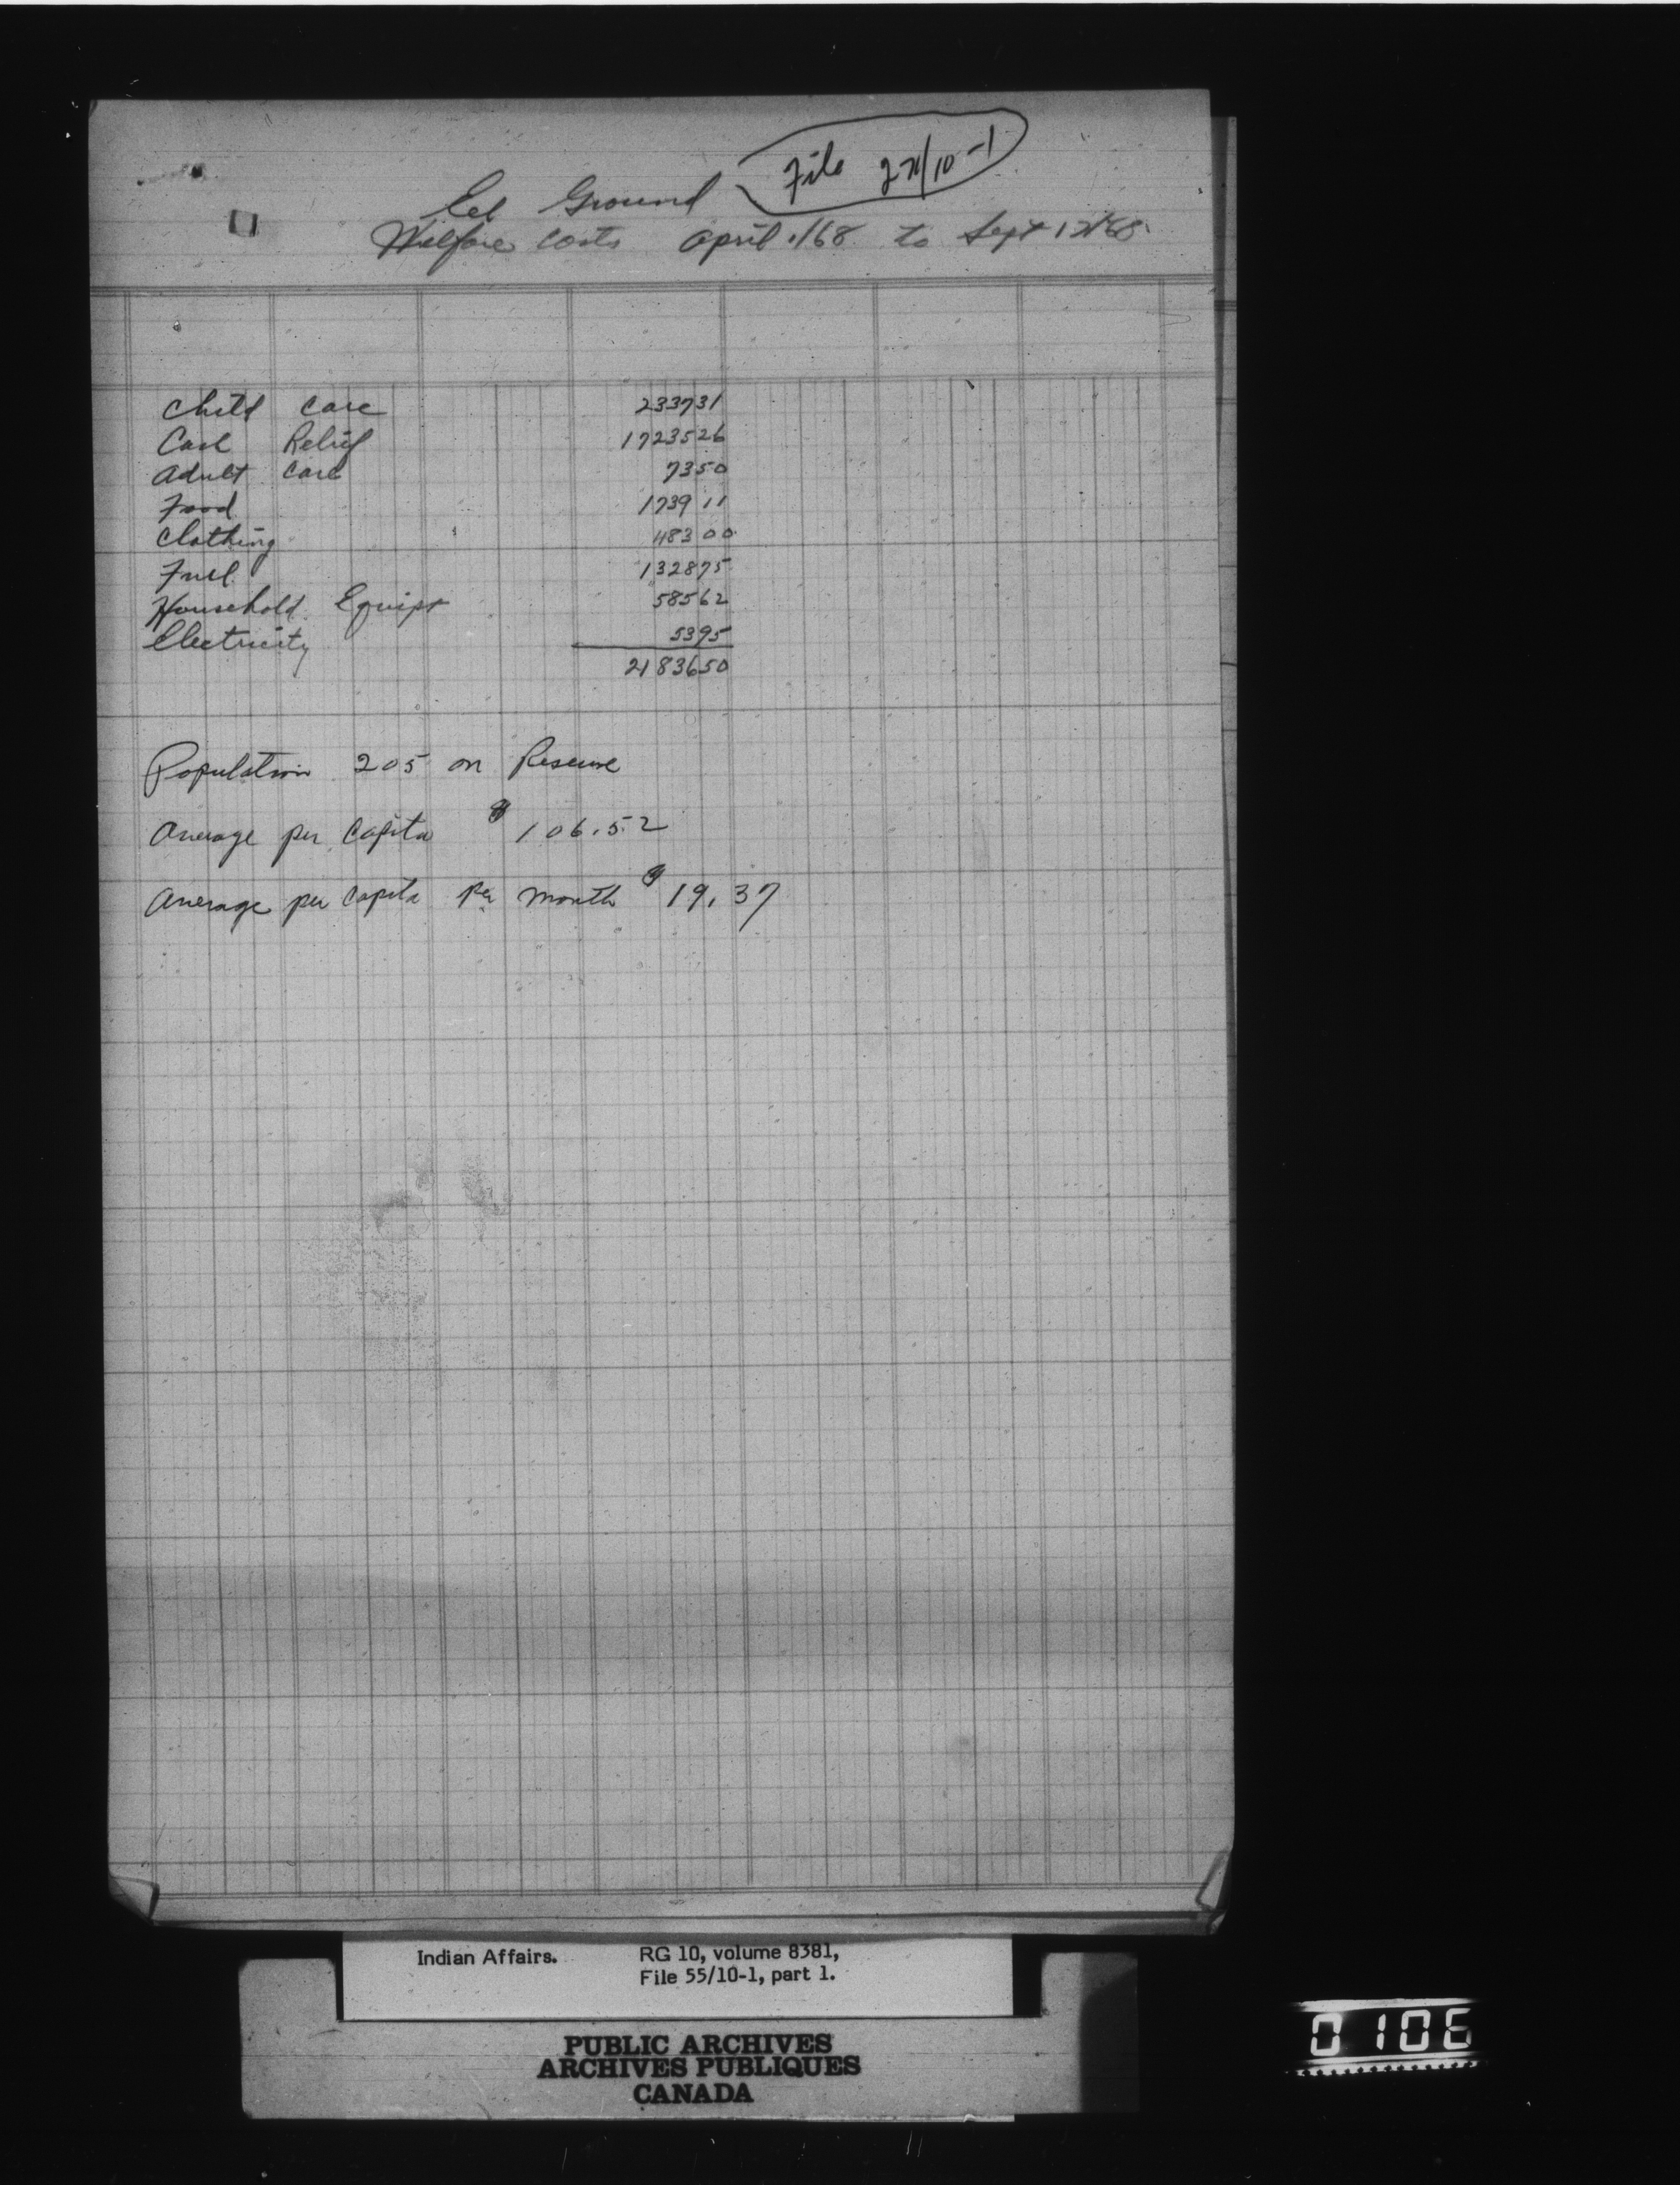 File
Eel Ground
Welfare Costs April 1/68 to Sept
Child Care 233731
Cash Relief 1723526
Adult Care 7350
Food 173911
Clothing 48300
Fuel 132875
Household Equipt 58562
Electricity 5395
2183650
Population 205 on Reserve
Average per Capita $106.52
Average per Capita per month $19.37
Indian Affairs. RG 10, volume 8381,
File 55/10-1, part 1.
PUBLIC ARCHIVES
ARCHIVES PUBLIQUES
CANADA
0106